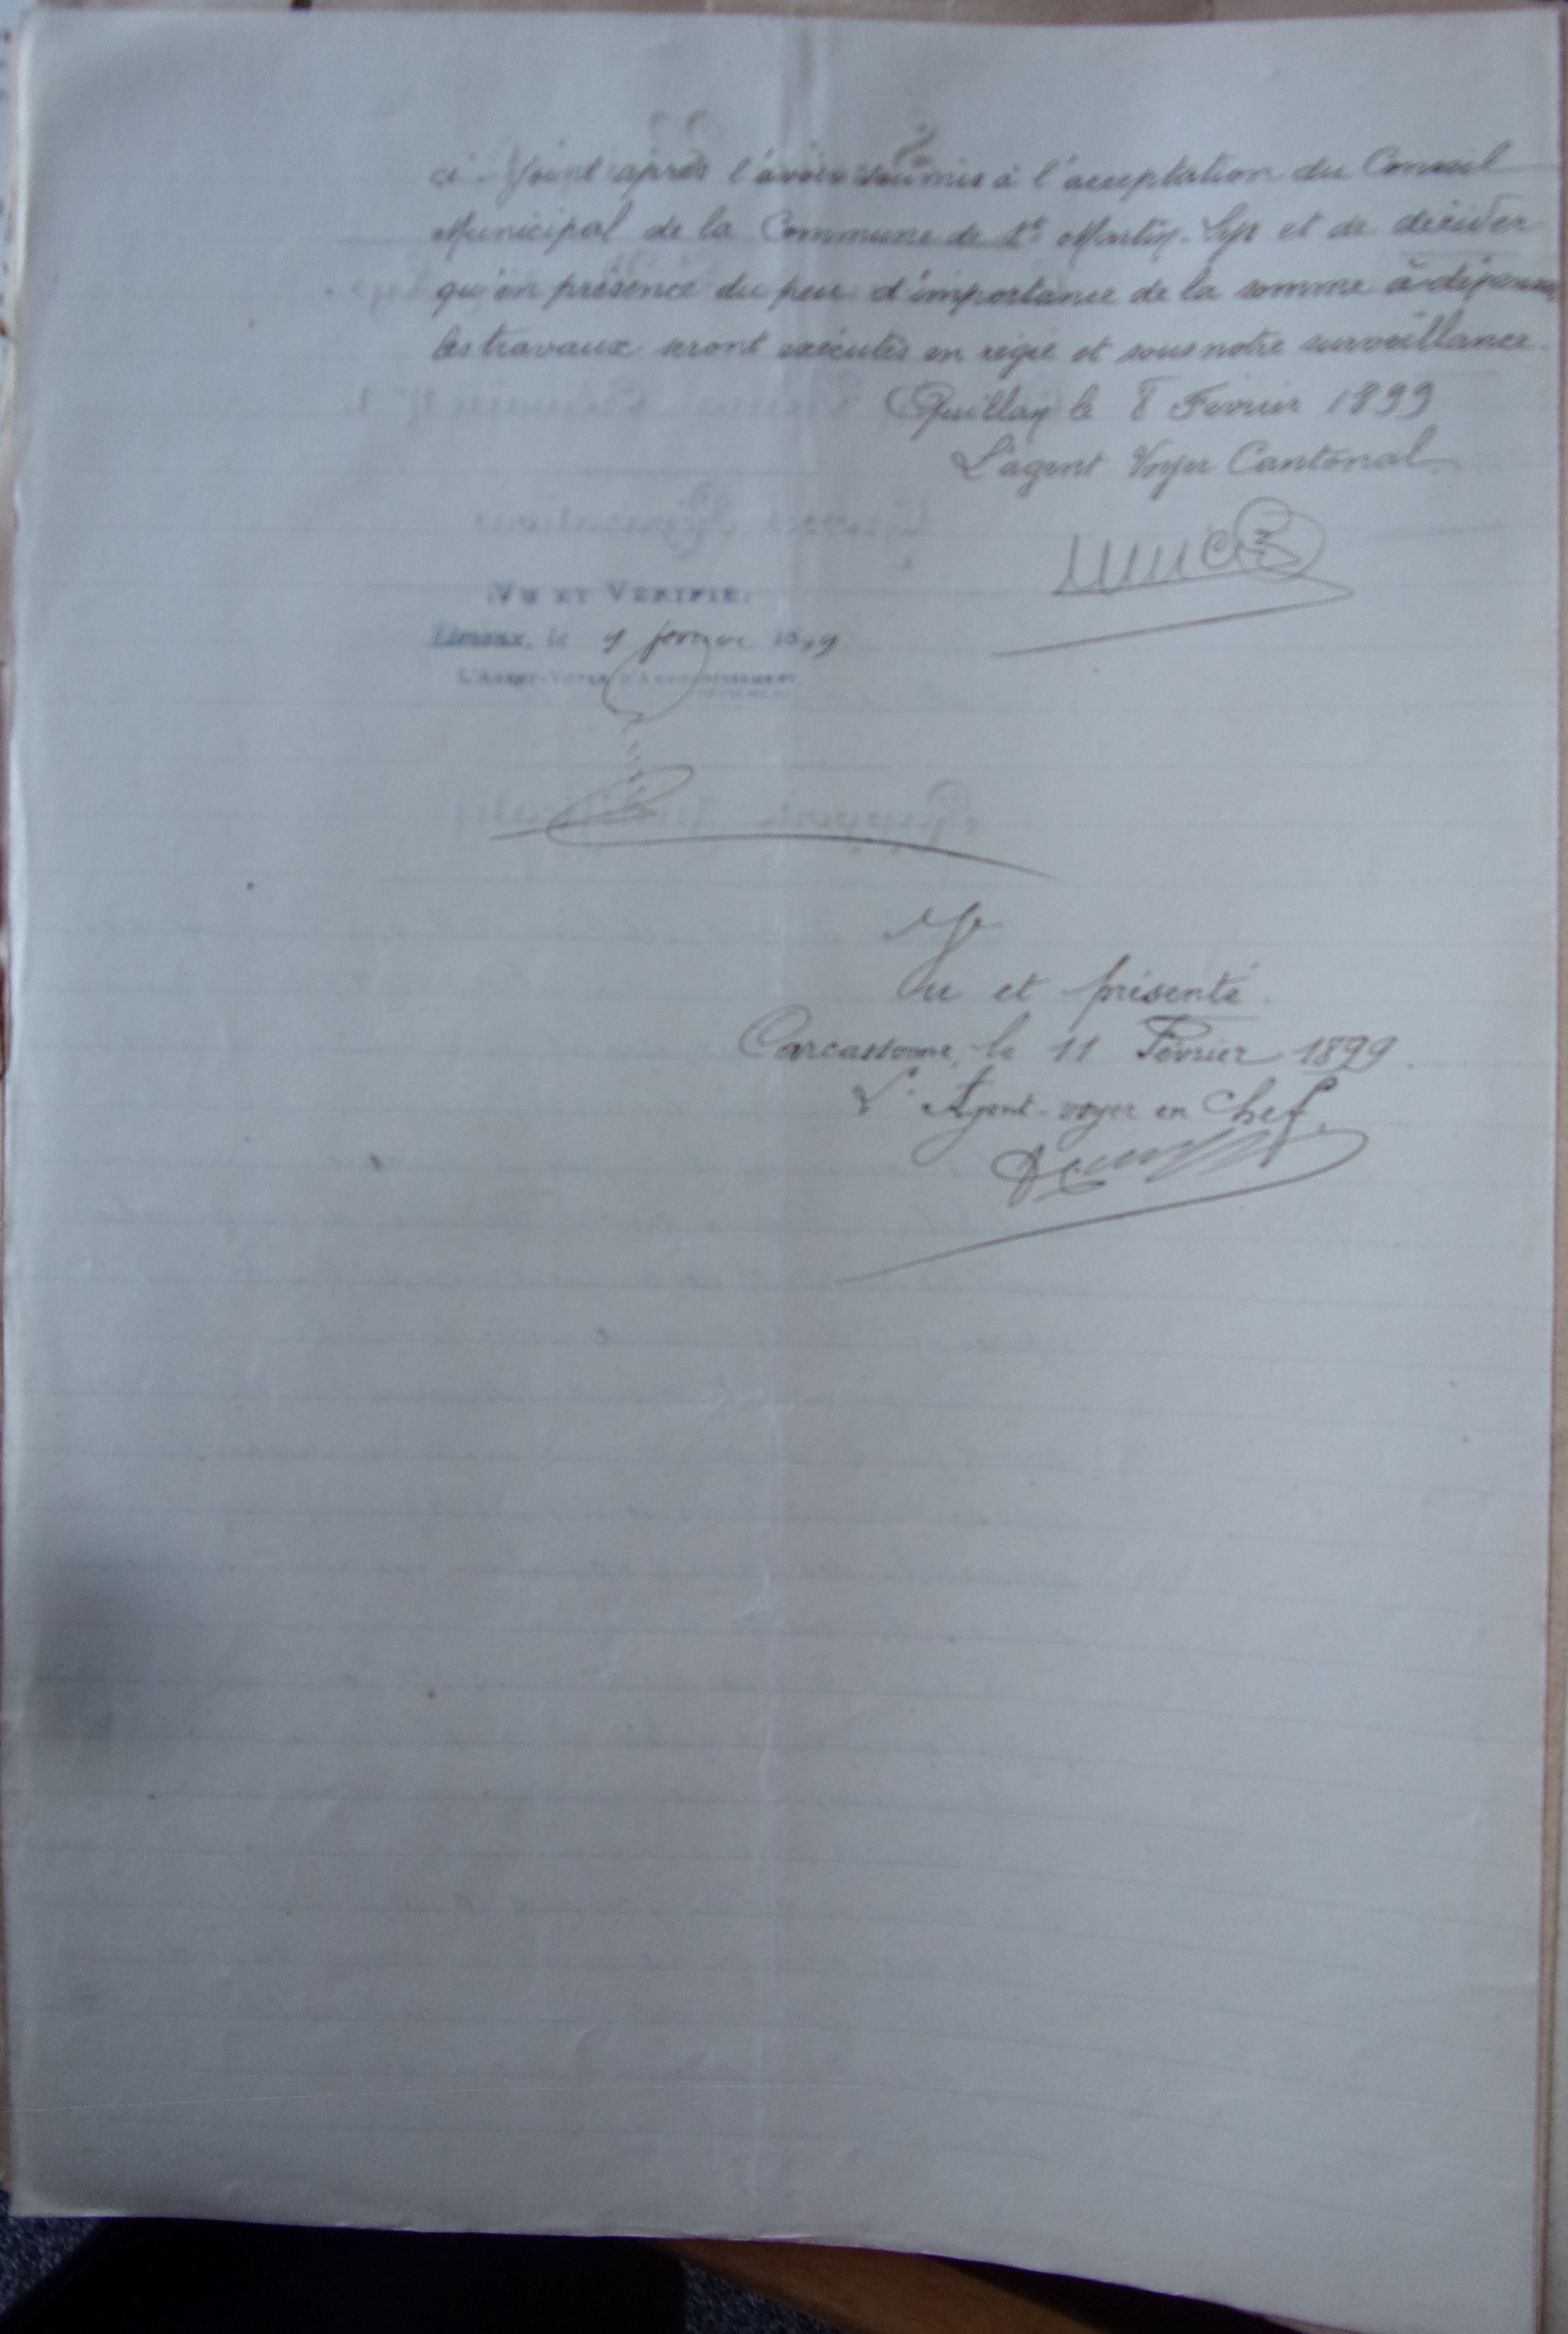 ci-joint après l'avoir soumis à l'acceptation du Conseil
Municipal de la Commune de St Martin-Lys et de décider
qu'en présence du peu d'importance de la somme à dépenser
les travaux seront exécutés en régie et sous notre surveillance.
Quillan le 8 Février 1899
L'agent Voyer Cantonal
VU ET VÉRIFIÉ:
Limoux, le 9 1899
L'AGENT-VOYER D'ARRONDISSEMENT,
Vu et présenté.
Carcassonne, le 11 Février 1899.
L'Agent-voyer en Chef,